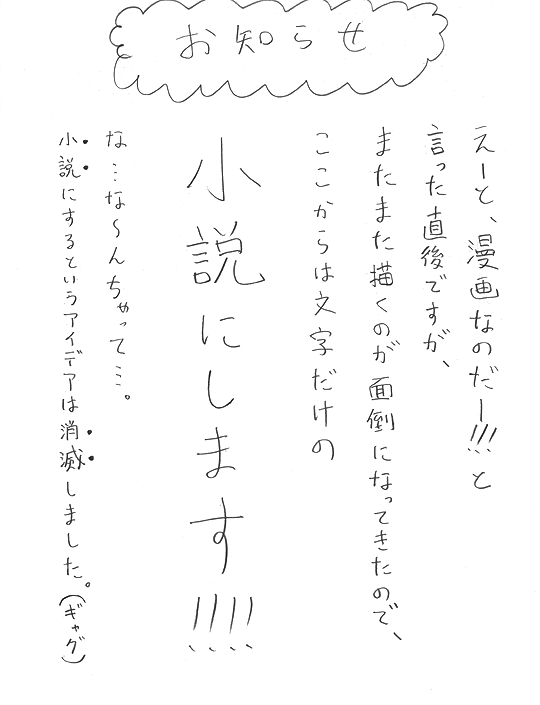 お知らせ
えーと、漫画なのだー!!!と
言った直後ですが、
またまた描くのが面倒になってきたので、
ここからは文字だけの
小説にします!!!!
な…な〜んちゃって…。
小説にするというアイデアは消滅しました。(ギャグ)